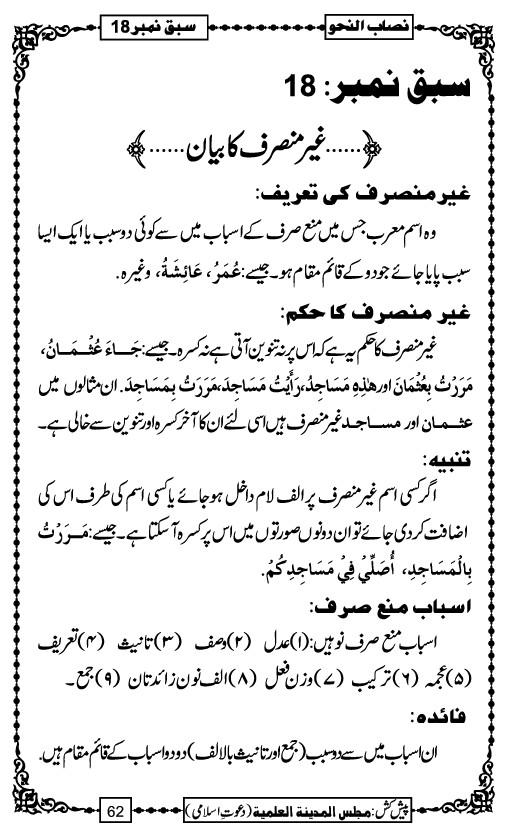 نصاب النحو
سبق نمبر 18
سبق نمبر: 18
......غیر منصرف کا بیان......
غیر منصرف کی تعریف:
وہ اسم معرب جس میں منع صرف کے اسباب میں سے کوئی دو سبب یا ایک ایسا
سبب پایا جائے جو دو کے قائم مقام ہو۔ جیسے: عُمَرُ، عَائِشَةُ، وغیرہ.
غیر منصرف کا حکم:
غیر منصرف کا حکم یہ ہے کہ اس پر نہ تنوین آتی ہے نہ کسرہ۔ جیسے: جَاءَ عُثْمَانُ،
مَرَرْتُ بِعُثْمَانَ اور هٰذِهِ مَسَاجِدُ، رَأَيْتُ مَسَاجِدَ، مَرَرْتُ بِمَسَاجِدَ. ان مثالوں میں
عثمان اور مساجد غیر منصرف ہیں اسی لئے ان کا آخر کسرہ اور تنوین سے خالی ہے۔
تنبیہ:
اگر کسی اسم غیر منصرف پر الف لام داخل ہو جائے یا کسی اسم کی طرف اس کی
اضافت کر دی جائے تو ان دونوں صورتوں میں اس پر کسرہ آ سکتا ہے۔ جیسے: مَرَرْتُ
بِالْمَسَاجِدِ، أُصَلِّيْ فِيْ مَسَاجِدِكُمْ.
اسباب منع صرف:
اسباب منع صرف نو ہیں: (۱) عدل (۲) وصف (۳) تانیث (۴) تعریف
(۵) عجمہ (۶) ترکیب (۷) وزن فعل (۸) الف نون زائدتان (۹) جمع۔
فائدہ:
ان اسباب میں سے دو سبب (جمع اور تانیث بالالف) دو دو اسباب کے قائم مقام ہیں.
پیش کش: مجلس المدینة العلمیة (دعوتِ اسلامی)
62